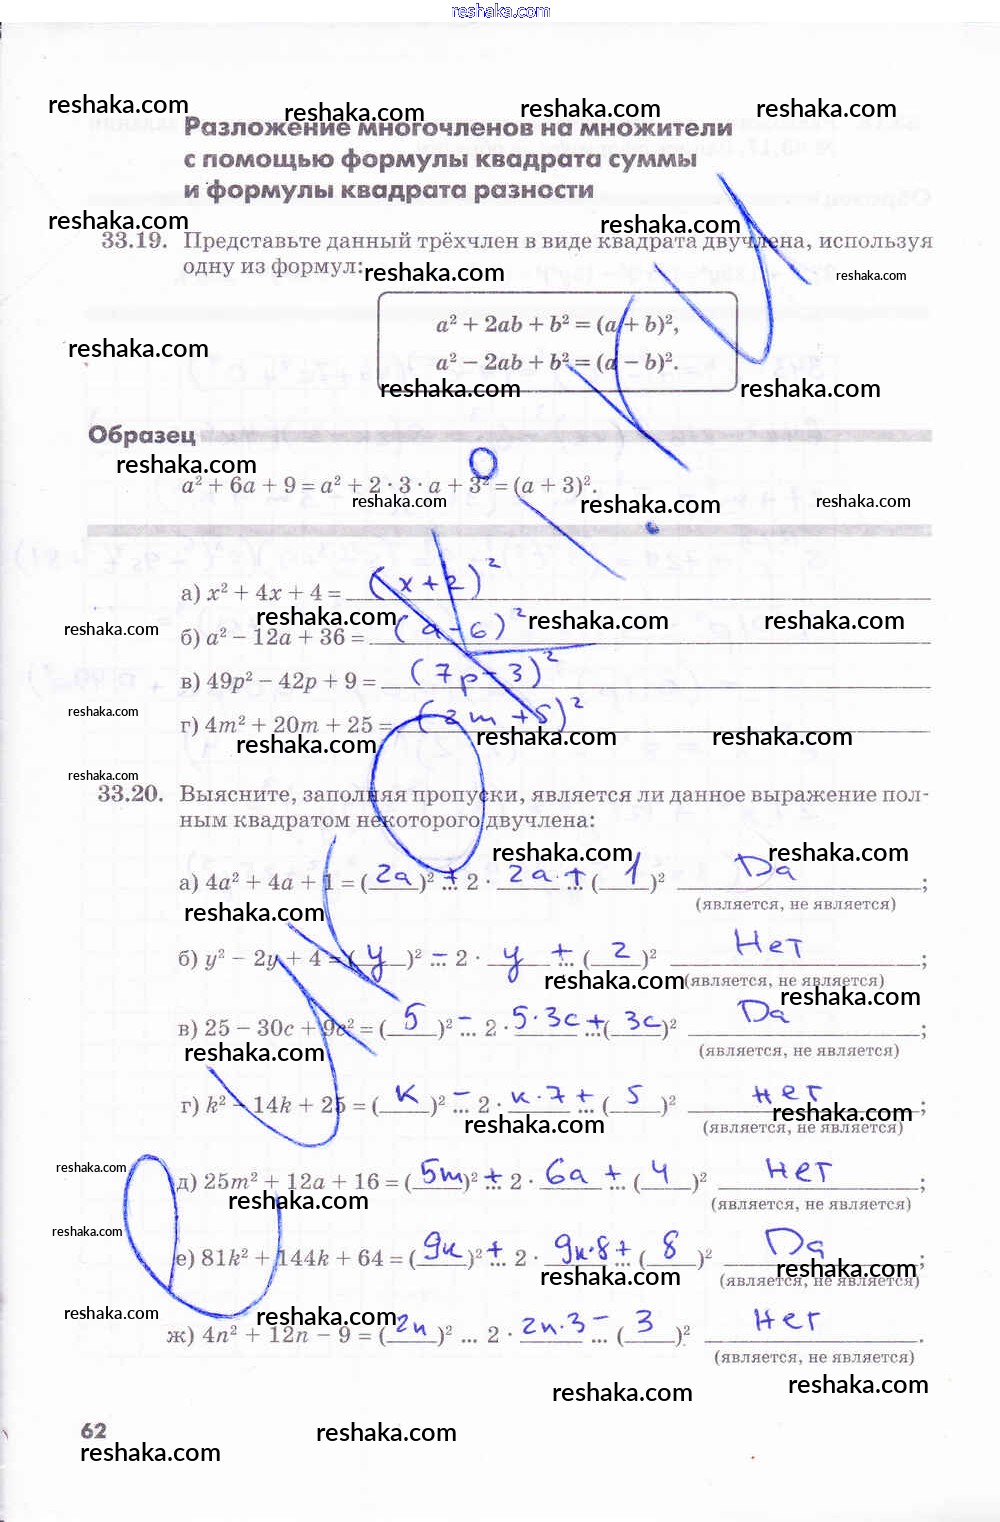 reshaka.com
reshaka.com reshaka.com reshaka.com reshaka.com
Разложение многочленов на множители
с помощью формулы квадрата суммы
и формулы квадрата разности
reshaka.com reshaka.com
33.19. Представьте данный трёхчлен в виде квадрата двучлена, используя
одну из формул:
reshaka.com reshaka.com
a² + 2ab + b² = (a + b)²,
reshaka.com
a² − 2ab + b² = (a − b)².
reshaka.com reshaka.com
Образец
reshaka.com
a² + 6a + 9 = a² + 2 · 3 · a + 3² = (a + 3)².
reshaka.com reshaka.com reshaka.com
а) x² + 4x + 4 = (x+2)²
reshaka.com reshaka.com reshaka.com reshaka.com
б) a² − 12a + 36 = (a-6)²
в) 49p² − 42p + 9 = (7p-3)²
reshaka.com
г) 4m² + 20m + 25 = (2m+5)²
reshaka.com reshaka.com reshaka.com
reshaka.com
33.20. Выясните, заполняя пропуски, является ли данное выражение пол-
ным квадратом некоторого двучлена:
reshaka.com reshaka.com
а) 4a² + 4a + 1 = (2a)² + ... 2 · 2a + ... (1)² Да ;
(является, не является)
reshaka.com
б) y² − 2y + 4 = (y)² − ... 2 · y + ... (2)² Нет ;
reshaka.com (является, не является)
reshaka.com
в) 25 − 30c + 9c² = (5)² − ... 2 · 5·3c + ...(3c)² Да ;
reshaka.com (является, не является)
г) k² − 14k + 25 = (к)² − ... 2 · к·7 + ... (5)² нет ;
reshaka.com reshaka.com
(является, не является)
reshaka.com
д) 25m² + 12a + 16 = (5m)² + ... 2 · 6a + ... (4)² нет ;
reshaka.com (является, не является)
reshaka.com
е) 81k² + 144k + 64 = (9к)² + ... 2 · 9к·8 + ... (8)² Да ;
reshaka.com reshaka.com
(является, не является)
reshaka.com reshaka.com
ж) 4n² + 12n − 9 = (2n)² ... 2 · 2n·3 − ... (3)² Нет .
(является, не является)
reshaka.com reshaka.com
62
reshaka.com reshaka.com